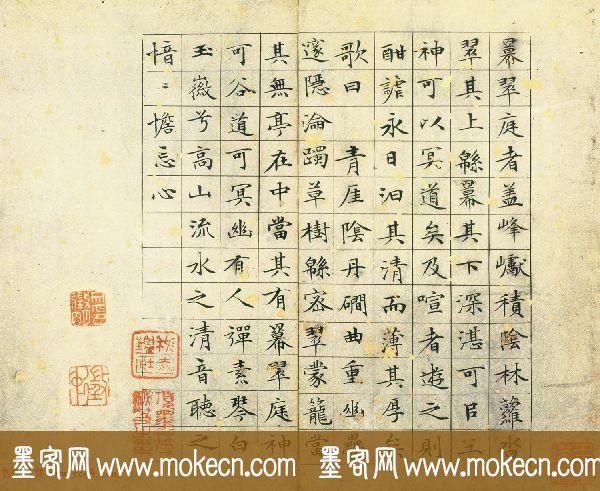 冪翠庭者盖峰巘積陰林蘿沓
翠其上緜冪其下深湛可㠯王
神可以冥道矣及喧者遊之則
酣謔永日汩其清而薄其厚矣
歌曰 青厓陰丹磵曲重幽疊
邃隱淪躅草樹緜密翠蒙籠當
其無亭在中當其有冪翠庭神
可谷道可冥幽有人彈素琴白
玉徽兮高山流水之清音聽之
愔〻憺忘心
墨客网 www.mokecn.com 墨客网 www.mokecn.com